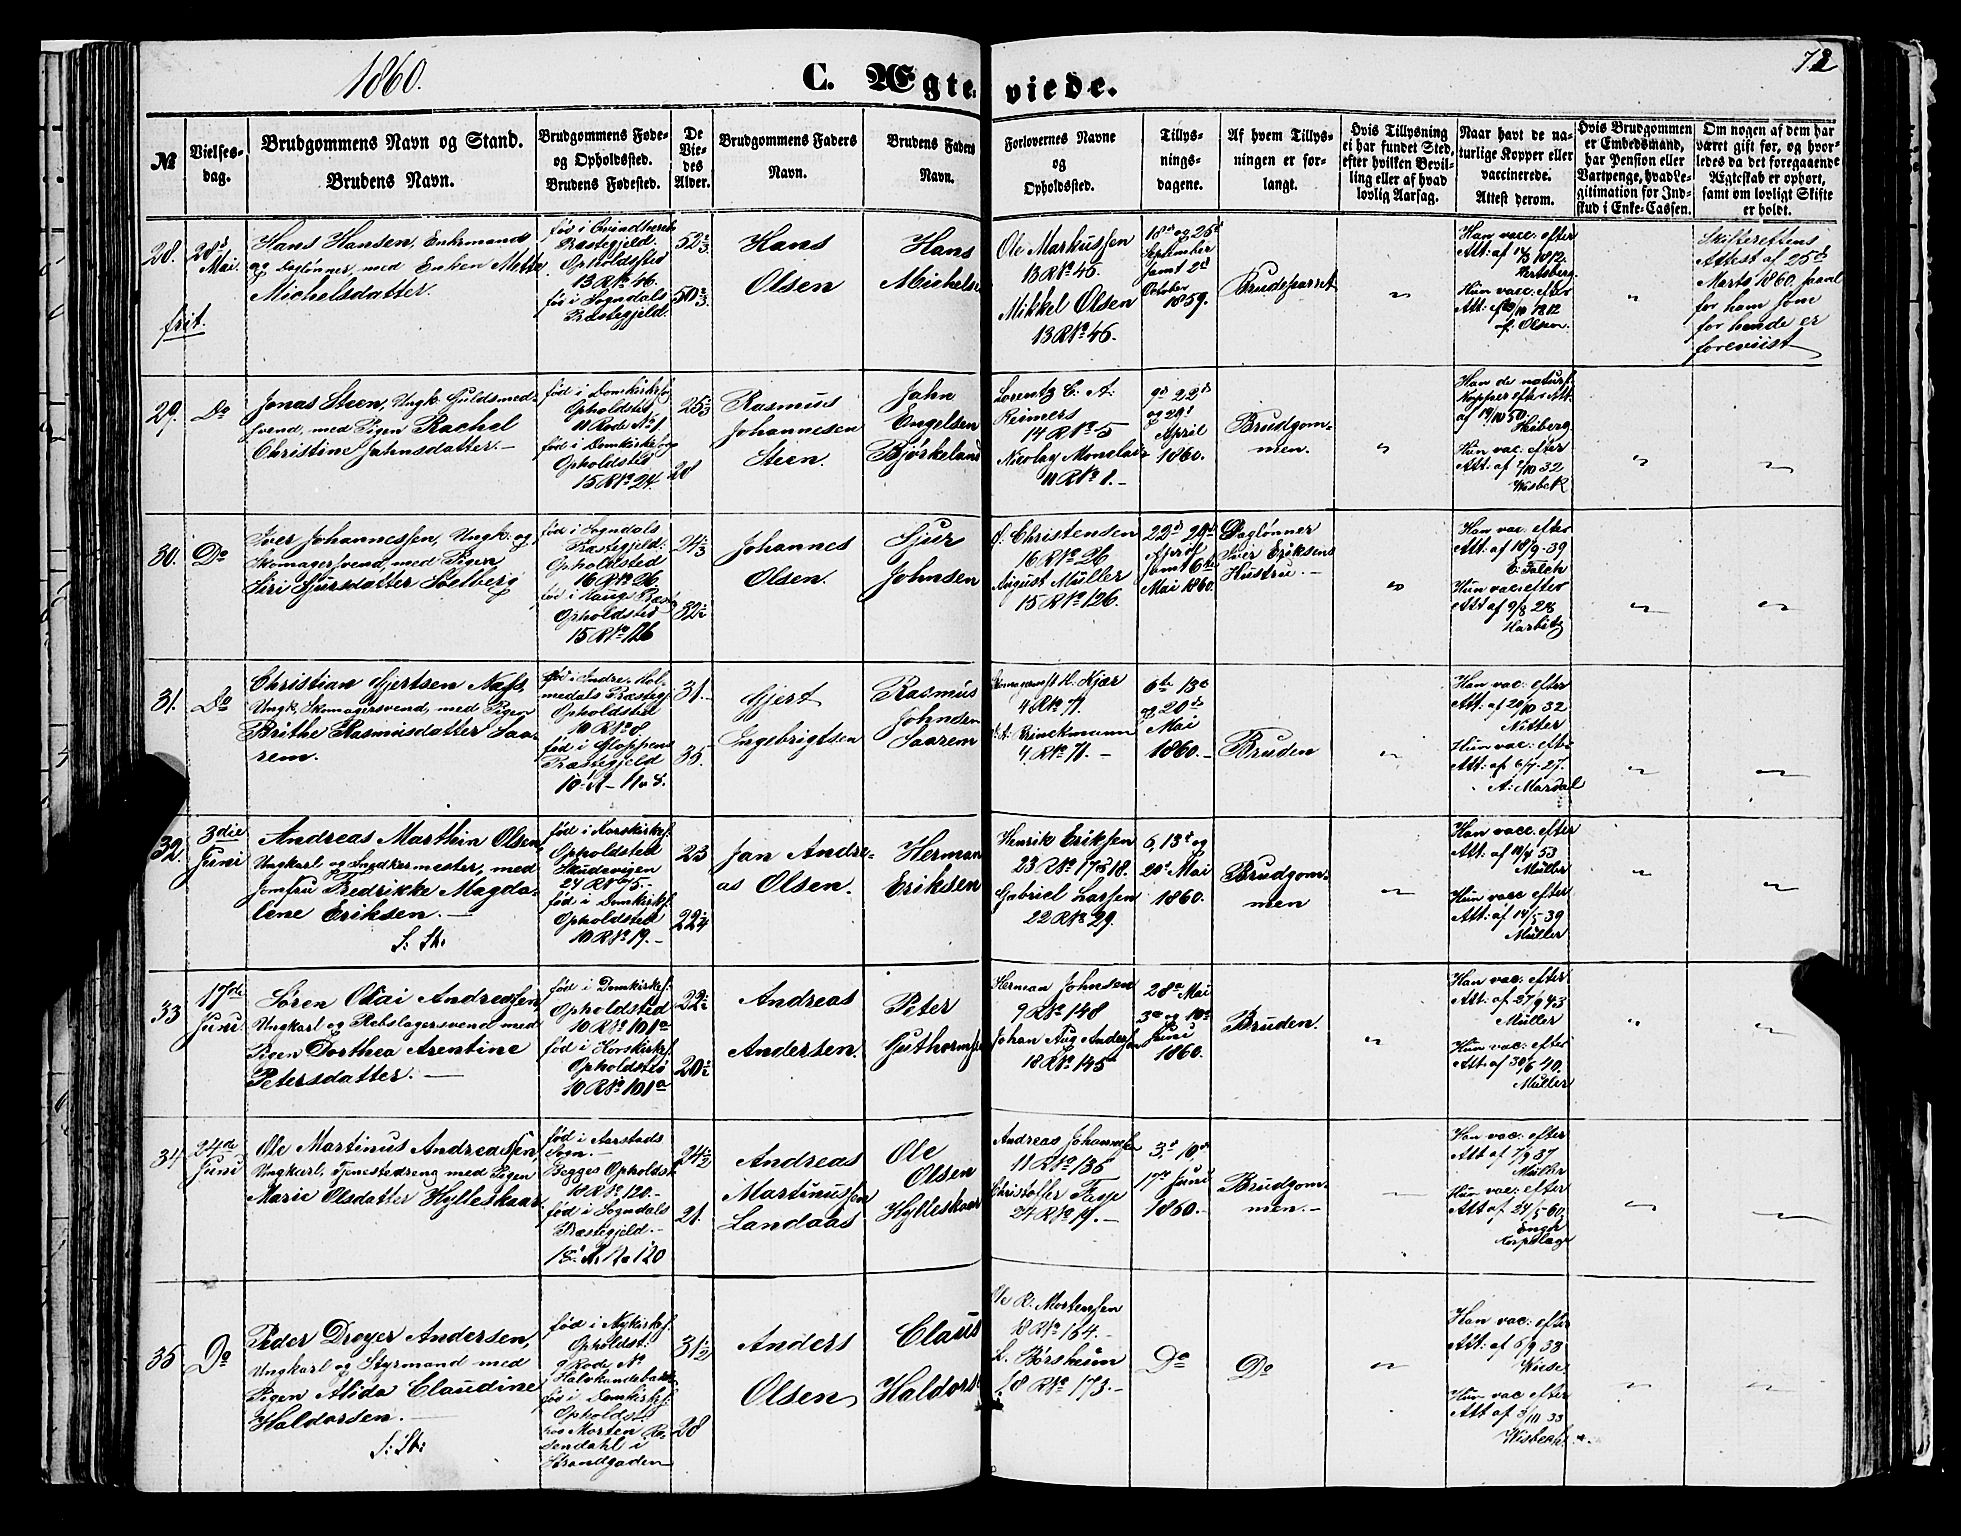 1860.
C. Ægteviede.
72
№
Vielses-
dag.
Brudgommens Navn og Stand.
Brudens Navn.
Brudgommens Føde-
og Opholdssted.
Brudens Fødested.
De
Vie-
des
Alder.
Brudgommens Faders
Navn.
Brudens Faders
Navn.
Forlovernes Navne
og
Opholdssted.
Tillys-
nings-
dagene.
Af hvem Tillys-
ningen er for-
langt.
Hvis Tillysning
ei har fundet Sted,
efter hvilken Bevil-
ling eller af hvad
lovlig Aarsag.
Naar havt de na-
turlige Kopper eller
vaccinerede.
Attest derom.
Hvis Brudgommen
er Embedsmand,
har Pension eller
Vartpenge, hvad Le-
gitimation for Ind-
skud i Enke-Cassen.
Om nogen af dem har
været gift før, og hvor-
ledes da det foregaaende
Ægteskab er ophørt,
samt om lovligt Skifte
er holdt.
28.
frit.
28d
Mai.
Hans Hansen, Enkemand
og Daglønner, med Enken Mette
Michelsdatter.
fød i Qvindherreds
Præstegjeld.
Opholdssted
13 R No 46.
fød i Sogndals
Præstegjeld.
52 2/3
50 2/3
Hans
Olsen
Hans
Michelse
Ole Markussen
13 R No 46.
Mikkel Olsen
13 R No 46.
18d og 25d
September
samt 2d
October
1859.
Brudeparret
"
Han vacc. efter
Att: af 14/8 1812.
Hertzberg.
Hun vacc. efter
Att: af 29/10 1812
af Olsen.
"
Skifterettens
Attest af 25d
Marts 1860 saavel
for ham som
for hende er
foreviist
29.
Do
Jonas Steen, Ungk. Guldsmed-
svend, med Pigen Rachel
Christine Jahnsdatter.-
fød i Domkirkes.
Opholdsted
11 Rode No 1.
fød i Domkirkes. og
Opholdsted
15 R No 24.
25 2/3
28
Rasmus
Johannesen
Steen.
Jahn
Engelsen
Bjørkeland
Lorentz C. A.
Reimers
14 R No 5
Nicolay Monclair
11 R No 1.-
9d 22d
og 29d
April
1860.
Brudgom-
men.
"
Han de naturl.
Kopper efter Att.
af 19/10 50.
Heiberg
Hun vac. efter
Att: af 2/10 32
Wisbek
"
"
30.
Do
Iver Johannessen, Ungk. og
Skomagersvend, med Pigen
Siri Sjursdatter Solberg
fød i Sogndals
Præstegjeld.
Opholdsted
16 R No 26.
fød i Haugs Præst.
Opholdsted
15 R No 126
24 1/3
32 1/2
Johannes
Olsen.
Sjur
Johnsen
J. Christensen
16 R No 26
August Müller
15 R No 126.
22d 29d
April
samt 6te
Mai 1860.
Daglønner
Iver Eriksens
Hustru.-
"
Han vac. efter
Att: af 18/9-39
C. Falch
Hun vac. efter
Att af 9/8 28
Harbitz
"
"
31.
Do
Christian Gjertsen Næss,
Ungk. Skomagersvend, med Pigen
Brithe Rasmusdatter Saa-
rem.
fød i Indre Hol-
medals Præstegj.
Opholdsted
10 R No 8.
fød i Gloppens
Præstegjeld
10 R No 8.
31.
35.
Gjert
Ingebrigtsen
Rasmus
Johnsen
Saarem
Skomagermst H. Kjær
4 R No 71.
A. Brinckmann
4. R No 71.-
6te 13d
og 20de
Mai
1860.-
Bruden
"
Han vac: efter
Att: af 28/10 32
Nitter
Hun vac: efter
Att: af 6/7-27.
A: Mardal
"
"
32.
3die
Juni
Andreas Marthin Olsen,
Ungkarl og Snedkermester, med
Jomfru Fredrikke Magda-
lene Eriksen.-
S. St.
fød i Korskirkes.
Opholdsted
Skudevigen
24 R No 5.-
fød i Domkirkes.
Opholdsted
10 R No 19.-
23
22 1/4
Jan Andre-
as Olsen.
Herman
Eriksen
Henrik Eriksen
23 R No 17 & 18.
Gabriel Larsen
22 R No 29.
6, 13d og
20d Mai
1860.
Brudgom-
men
"
Han vacc: efter
Att: af 18/4 53
Müller
Hun vacc efter
Att: af 14/5-39
Müller
"
"
33
17de
Juni.
Søren Olai Andreassen,
Ungkarl og Rebslagersvend med
Pigen Dorthea Arentine
Petersdatter.-
fød i Domkirkes.
Opholdsted
10 R No 101a
fød i Korskirkes.
Opholdsted
10 R No 101a
22 1/2
20 1/2
Andreas
Andersen.
Peter
Guthorms
Herman Johnsen
9 R No 148
Johan Aug Andersen
18 R No 145a
28d Mai
3d og 10d
Juni
1860.
Bruden.
"
Han vac: efter
Att: af 27/9 43
Müller
Hun vac: efter
Att: af 30/6 40.
Müller
"
"
34
24de
Juni
Ole Martinus Andreassen,
Ungkarl, Tjenestedreng med Pigen
Marie Olsdatter Hylleskaar.
fød i Aarstads
Sogn.-
Begges Opholdst.
18 R No 120.-
fød i Sogndals
Præstegjeld.-
18 R. No 120
24 1/2
21.
Andreas
Martinussen
Landaas
Ole
Olsen
Hylleskaar
Andreas Johannesen
11 R No 136
Christoffer
24 R No 19.-
3d 10d
17d Juni
1860.-
Brudgom-
men.-
Han vac: efter
Att af 7/9 37
Müller
Hun vac: efter
Att af 24/5-60,
Korpslæge
"
"
35
Do
Peder Dreyer Andersen,
Ungkarl og Styrmand med
Pigen Alida Claudine
Haldorsen.-
S: St:
fød i Nykirkes.
Opholdst:
9 Rode No
i Halvkandebakken
fød i Domkirkes.
Opholdst:
hos Morten Ro-
sendahl i
Strandgaden
31 1/2
28
Anders
Olsen
Claus
Haldors
Ole R. Mortensen
18 R No 164.-
L. Børsheim
18 R No 173.-
Do
Do
"
Han vac: efter
Att: af 6/9 33
Wiese
Hun vac efter
Att af 5/10 33
Wisbech
"
"